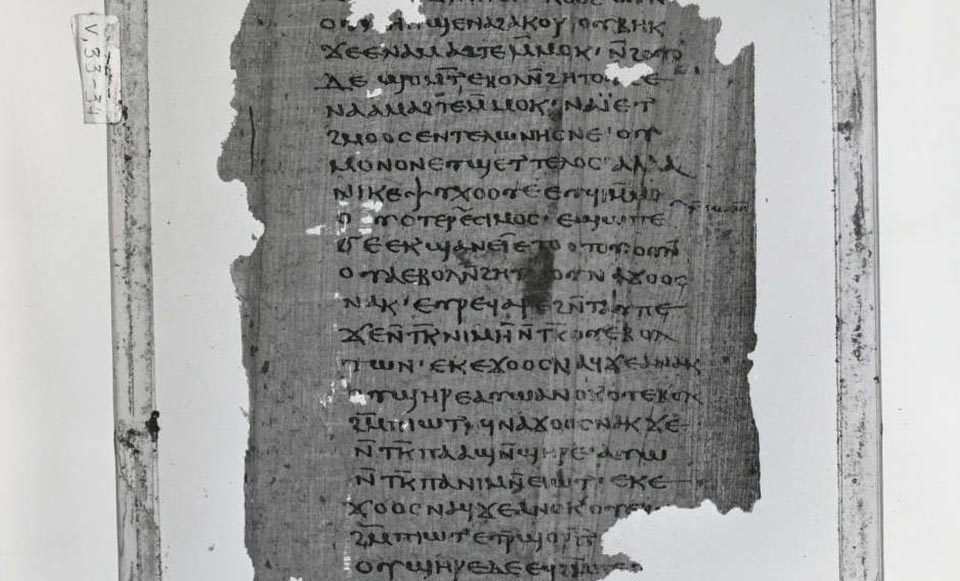 V, 33-34
ⲛⲁϩⲁⲕⲟⲩ ⲟⲩⲃⲏⲕ
ϫⲉ ⲉⲛⲁⲙⲁϩⲧⲉ ⲙ̄ⲙⲟⲕ· ⲛ̄ϩⲟⲩⲟ
ⲇⲉ ϣⲟⲙⲧ̄ ⲉⲃⲟⲗ ⲛ̄ϩⲏⲧⲟⲩ
ⲛⲁⲁⲙⲁϩⲧⲉ ⲙ̄ⲙⲟⲕ· ⲛⲁⲓ̈ ⲉⲧ
ϩⲙⲟⲟⲥ ⲉⲛⲧⲉⲗⲱⲛⲏⲥ ⲛⲉ· ⲟⲩ
ⲙⲟⲛⲟⲛ ⲉⲩϣⲉⲧ ⲧⲉⲗⲟⲥ· ⲁⲗⲗⲁ
ⲛⲓⲕⲉⲯⲩⲭⲟⲟⲩⲉ ⲉⲩϥⲓ ⲙ̄ⲙⲟ
ⲥⲧⲉⲣⲉ̄ⲥⲓⲙⲟⲥ· ⲉϣⲱⲡⲉ
ϭⲉ ⲉⲕϣⲁⲛⲉⲓ̈ ⲉⲧⲟⲟⲧⲟⲩ ⲟⲩⲛ̄
ⲟⲩⲁ ⲉⲃⲟⲗ ⲛ̄ϩⲏⲧⲟⲩ ⲛⲁϫⲟⲟⲥ
ⲛⲁⲕ· ⲉⲩⲣⲉϥⲁⲣⲉϩ ⲛ̄ⲧⲁⲩ ⲡⲉ
ϫⲉ ⲛ̄ⲧⲕ̄ ⲛⲓⲙ ⲏ̄ ⲛ̄ⲧⲕ̄ ⲟⲩⲉⲃⲟⲗ
ⲧⲱⲛ· ⲉⲕⲉϫⲟⲟⲥ ⲛⲁϥ ϫⲉ ⲁⲛⲟⲕ
ⲟⲩϣⲏⲣⲉ ⲁⲩⲱ ⲁⲛⲟⲕ ⲟⲩⲉⲃⲟⲗ
ϩⲙ̄ ⲡⲓⲱⲧ· ϥⲛⲁϫⲟⲟⲥ ⲛⲁⲕ ϫⲉ
ⲛ̄ⲧⲕ̄ ⲡⲁ ⲁϣ ⲛ̄ϣⲏⲣⲉ· ⲁⲩⲱ
ⲛ̄ⲧⲕ̄ ⲡⲁ ⲛⲓⲙ ⲛ̄ⲉⲓⲱⲧ· ⲉⲕⲉ
ϫⲟⲟⲥ ⲛⲁϥ ϫⲉ ⲁⲛⲟⲕ ⲟⲩⲉⲃ
ϩⲙ̄ ⲡⲓⲱⲧ ⲉⲧⲣ̄ϣⲟⲣⲡ
ⲟⲩϣⲏⲣⲉ ⲇⲉ